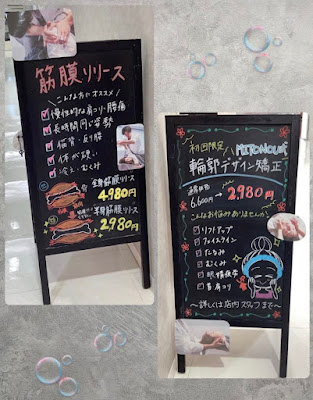 筋膜リリース
こんな方にオススメ
慢性的な肩コリ・腰痛
長時間同じ姿勢
猫背・反り腰
体が硬い
冷え・むくみ
全身筋膜リリース
4.980円
半身筋膜リリース
2.980円
初回限定
輪郭デザイン矯正
通常価格
6,600円
2,980円
こんなお悩みありませんか
リフトアップ
フェイスライン
たるみ
むくみ
眼精疲労
首肩コリ
〜詳しくは店内スタッフまで〜